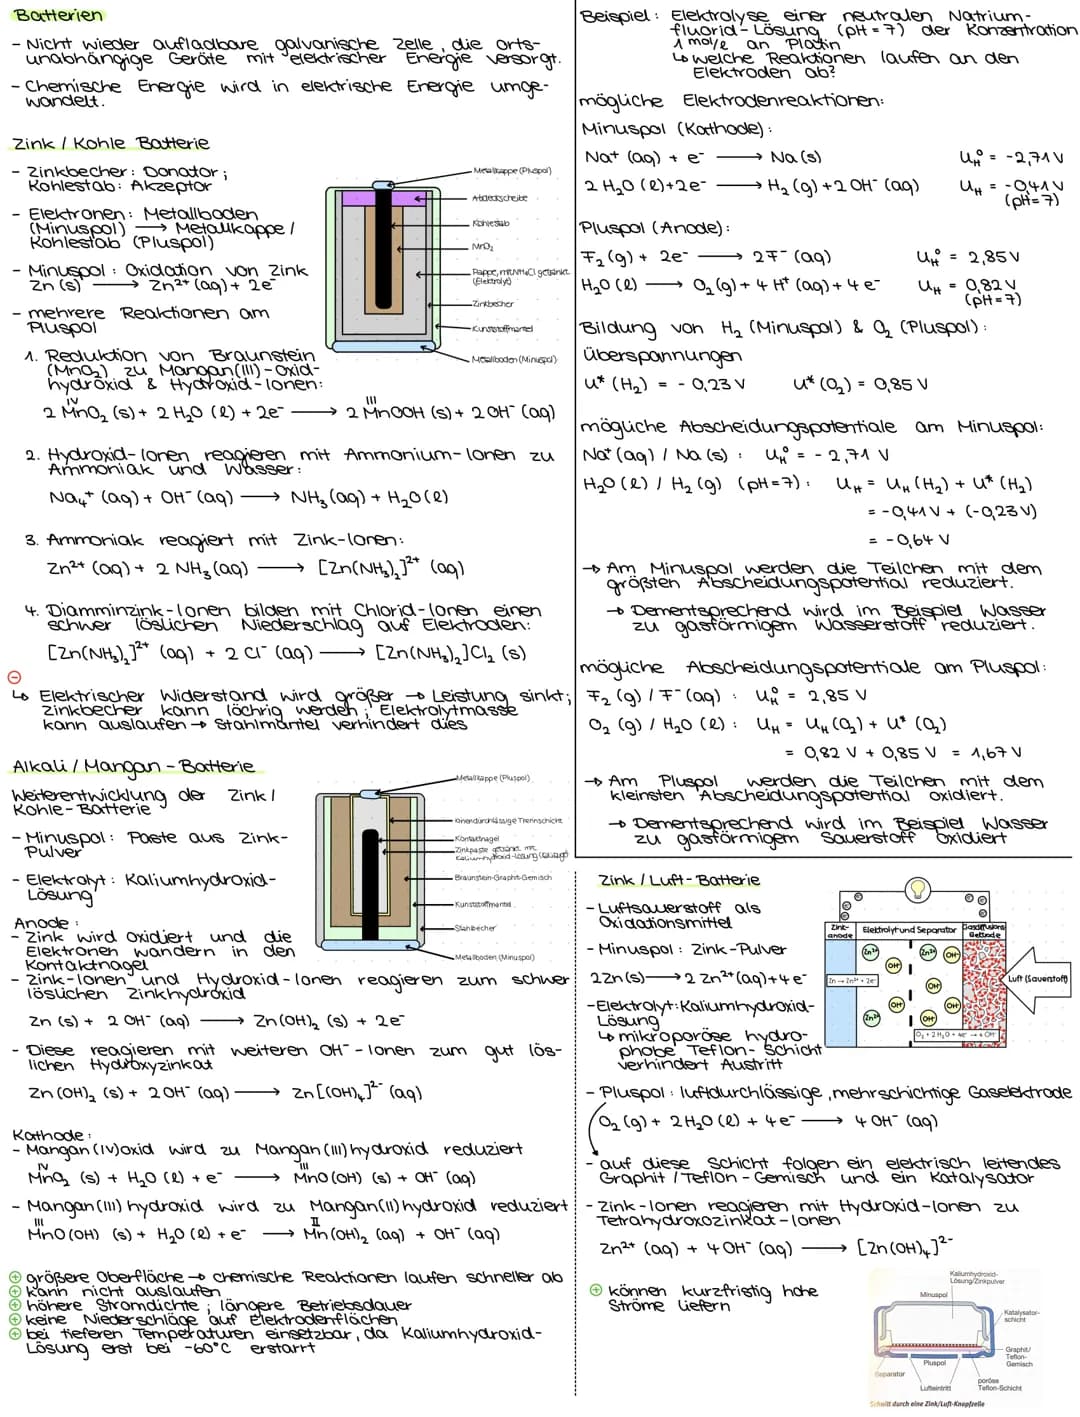 Batterien
- Nicht wieder aufladbare galvanische Zelle, die orts-
unabhängige Geräte mit elektrischer Energie versorgt.
- Chemische Energie wird in elektrische Energie umge-
wandelt.
Zink / Kohle Batterie
- Zinkbecher: Donator;
Kohlestab: Akzeptor
- Elektronen: Metallboden
(Minuspol) → Metallkappe /
Kohlestab (Pluspol)
- Minuspol: Oxidation von Zink
Zn (s) → Zn²⁺ (aq) + 2e⁻
- mehrere Reaktionen am
Pluspol
Metallkappe (Pluspol)
Abdeckscheibe
Kohlestab
MnO₂
Pappe, mit NH₄Cl getränkt
(Elektrolyt)
Zinkbecher
Kunststoffmantel
Metallboden (Minuspol)
1. Reduktion von Braunstein
(MnO₂) zu Mangan(III)-oxid-
hydroxid & Hydroxid-Ionen:
IV III
2 MnO₂ (s) + 2 H₂O (l) + 2e⁻ → 2 MnOOH (s) + 2 OH⁻ (aq)
2. Hydroxid-Ionen reagieren mit Ammonium-Ionen zu
Ammoniak und Wasser:
Na₄⁺ (aq) + OH⁻ (aq) → NH₃ (aq) + H₂O (l)
3. Ammoniak reagiert mit Zink-Ionen:
Zn²⁺ (aq) + 2 NH₃ (aq) → [Zn(NH₃)₂]²⁺ (aq)
4. Diamminzink-Ionen bilden mit Chlorid-Ionen einen
schwer löslichen Niederschlag auf Elektroden:
[Zn(NH₃)₂]²⁺ (aq) + 2 Cl⁻ (aq) → [Zn(NH₃)₂]Cl₂ (s)
⊖
↳ Elektrischer Widerstand wird größer → Leistung sinkt;
Zinkbecher kann löchrig werden; Elektrolytmasse
kann auslaufen → Stahlmantel verhindert dies
Alkali / Mangan - Batterie
Weiterentwicklung der Zink /
Kohle-Batterie
- Minuspol: Paste aus Zink-
Pulver
- Elektrolyt: Kaliumhydroxid-
Lösung
Metallkappe (Pluspol)
Ionendurchlässige Trennschicht
Kontaktnagel
Zinkpaste getränkt mit
Kaliumhydroxid-lösung
Braunstein-Graphit-Gemisch
Kunststoffmantel
Stahlbecher
Metallboden (Minuspol)
Anode:
- Zink wird oxidiert und die
Elektronen wandern in den
Kontaktnagel
- Zink-Ionen und Hydroxid-Ionen reagieren zum schwer
löslichen Zinkhydroxid
Zn (s) + 2 OH⁻ (aq) → Zn(OH)₂ (s) + 2e⁻
- Diese reagieren mit weiteren OH⁻-Ionen zum gut lös-
lichen Hydroxyzinkat
Zn(OH)₂ (s) + 2OH⁻ (aq) → Zn[(OH)₄]²⁻ (aq)
Kathode:
- Mangan(IV)oxid wird zu Mangan(III)hydroxid reduziert
IV III
MnO₂ (s) + H₂O (l) + e⁻ → MnO(OH) (s) + OH⁻ (aq)
- Mangan(III)hydroxid wird zu Mangan(II)hydroxid reduziert
III II
MnO(OH) (s) + H₂O (l) + e⁻ → Mn(OH)₂ (aq) + OH⁻ (aq)
⊕ größere Oberfläche → chemische Reaktionen laufen schneller ab
⊕ kann nicht auslaufen
⊕ höhere Stromdichte; längere Betriebsdauer
⊕ keine Niederschläge auf Elektrodenflächen
⊕ bei tieferen Temperaturen einsetzbar, da Kaliumhydroxid-
Lösung erst bei -60°C erstarrt
Beispiel: Elektrolyse einer neutralen Natrium-
fluorid-Lösung (pH = 7) der Konzentration
1 mol/l an Platin
↳ welche Reaktionen laufen an den
Elektroden ab?
mögliche Elektrodenreaktionen:
Minuspol (Kathode):
Na⁺ (aq) + e⁻ → Na (s) U_H° = -2,71 V
2 H₂O (l) + 2e⁻ → H₂ (g) + 2 OH⁻ (aq) U_H = -0,41 V
(pH=7)
Pluspol (Anode):
F₂ (g) + 2e⁻ → 2F⁻ (aq) U_H° = 2,85 V
H₂O (l) → O₂ (g) + 4 H⁺ (aq) + 4 e⁻ U_H = 0,82 V
(pH=7)
Bildung von H₂ (Minuspol) & O₂ (Pluspol):
Überspannungen
U* (H₂) = - 0,23 V U* (O₂) = 0,85 V
mögliche Abscheidungspotentiale am Minuspol:
Na⁺ (aq) / Na (s) : U_H° = - 2,71 V
H₂O (l) / H₂ (g) (pH=7) : U_H = U_H (H₂) + U* (H₂)
= -0,41 V + (-0,23 V)
= -0,64 V
→ Am Minuspol werden die Teilchen mit dem
größten Abscheidungspotential reduziert.
→ Dementsprechend wird im Beispiel Wasser
zu gasförmigem Wasserstoff reduziert.
mögliche Abscheidungspotentiale am Pluspol:
F₂ (g) / F⁻ (aq) : U_H° = 2,85 V
O₂ (g) / H₂O (l) : U_H = U_H (O₂) + U* (O₂)
= 0,82 V + 0,85 V = 1,67 V
→ Am Pluspol werden die Teilchen mit dem
kleinsten Abscheidungspotential oxidiert.
→ Dementsprechend wird im Beispiel Wasser
zu gasförmigem Sauerstoff oxidiert
Zink / Luft - Batterie
- Luftsauerstoff als
Oxidationsmittel
- Minuspol: Zink-Pulver
2Zn(s) → 2 Zn²⁺(aq) + 4e⁻
- Elektrolyt: Kaliumhydroxid-
Lösung
↳ mikroporöse hydro-
phobe Teflon-Schicht
verhindert Austritt
Zink-
anode
Elektrolyt und Separator
Gasdiffusions
Elektrode
Zn²⁺
Zn²⁺
OH⁻
OH⁻
OH⁻
OH⁻
OH⁻
Zn²⁺
OH⁻
Zn → Zn²⁺ + 2e⁻
Luft (Sauerstoff)
O₂ + 2 H₂O + 4e⁻ → 4 OH⁻
- Pluspol: luftdurchlässige, mehrschichtige Gaselektrode
O₂ (g) + 2 H₂O (l) + 4e⁻ → 4 OH⁻ (aq)
- auf diese Schicht folgen ein elektrisch leitendes
Graphit / Teflon - Gemisch und ein Katalysator
- Zink-Ionen reagieren mit Hydroxid-Ionen zu
Tetrahydroxozinkat-Ionen
Zn²⁺ (aq) + 4 OH⁻ (aq) → [Zn(OH)₄]²⁻
⊕ können kurzfristig hohe
Ströme liefern
Kaliumhydroxid-
Lösung/Zinkpulver
Minuspol
Katalysator-
schicht
Graphit/
Teflon-
Gemisch
Pluspol
Separator
poröse
Teflon-Schicht
Lufteintritt
Schnitt durch eine Zink/Luft-Knopfzelle